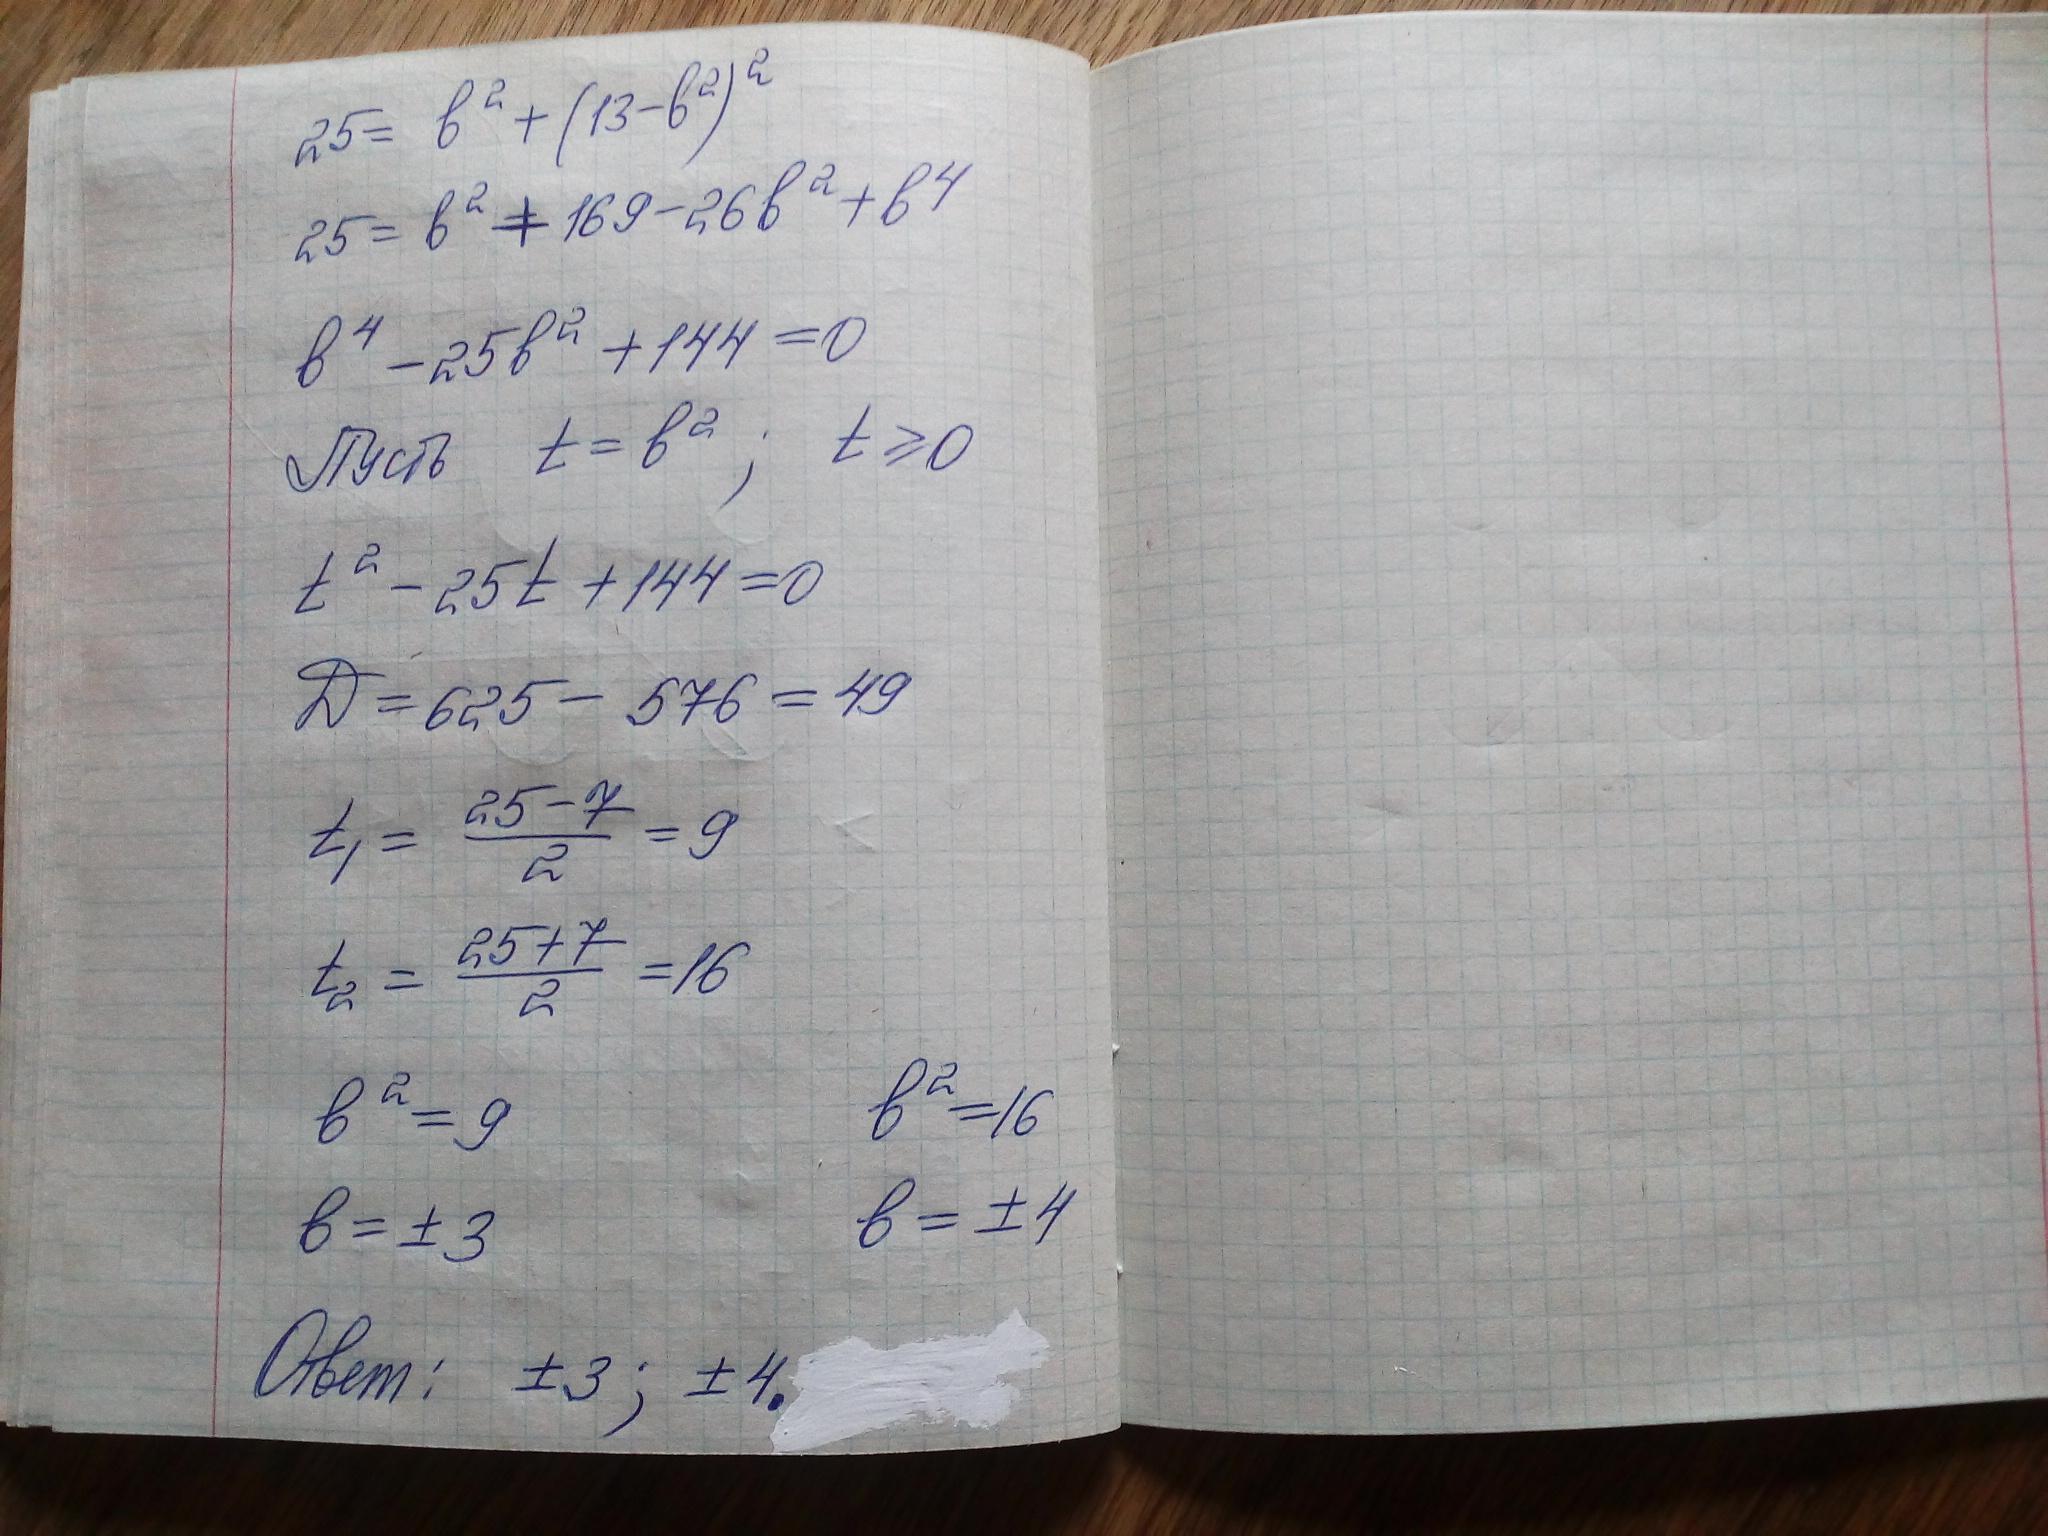 25 = в² + (13 - в²)²
25 = в² + 169 - 26в² + в⁴
в⁴ - 25в² + 144 = 0
Пусть t = в² ; t ⩾ 0
t² - 25t + 144 = 0
Д = 625 - 576 = 49
t₁ = (25 - 7)/2 = 9
t₂ = (25 + 7)/2 = 16
в² = 9 в² = 16
в = ± 3 в = ± 4
Ответ: ± 3 ; ± 4.